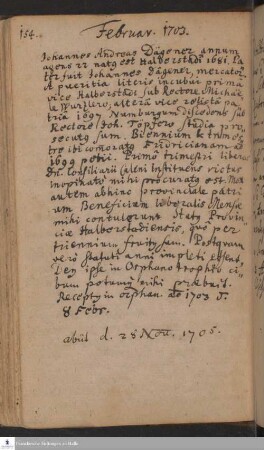 154.
Februar. 1703.
Johannes Andreas Dägener annum
agens 22 nat9 est Halberstadi 1681.
fuit Johannes Dägener, mercator.
A pueritia literis incubui prima
vice Halberstadi sub Rectore Michaële
altera vice relicta pa-
tria 1697 Numburgum discedens sub
Rectore Joh. Töpfer studia pro-
secut9 sum. Biennium &
commorat9 Fridericianam ao
1699 petii. Primis trimestri liberos
Dn. Consiliarii instituens victus
inopinato mihi procurat9 est. Non
autem abhinc provinciale patri-
um Beneficium liberalis Mensæ
mihi contulerunt Stat9 Provin-
ciæ Halberstadiensis, quo per
triennium fruit9 sum. Postquam
vero statuti anni impleti essent,
Deus ipse in Orphanotropheo ci-
bum potumq mihi præbuit.
Recept9 in orphan. ao 1703 d.
8 Febr.
abiit d. 28 Nov. 1705.